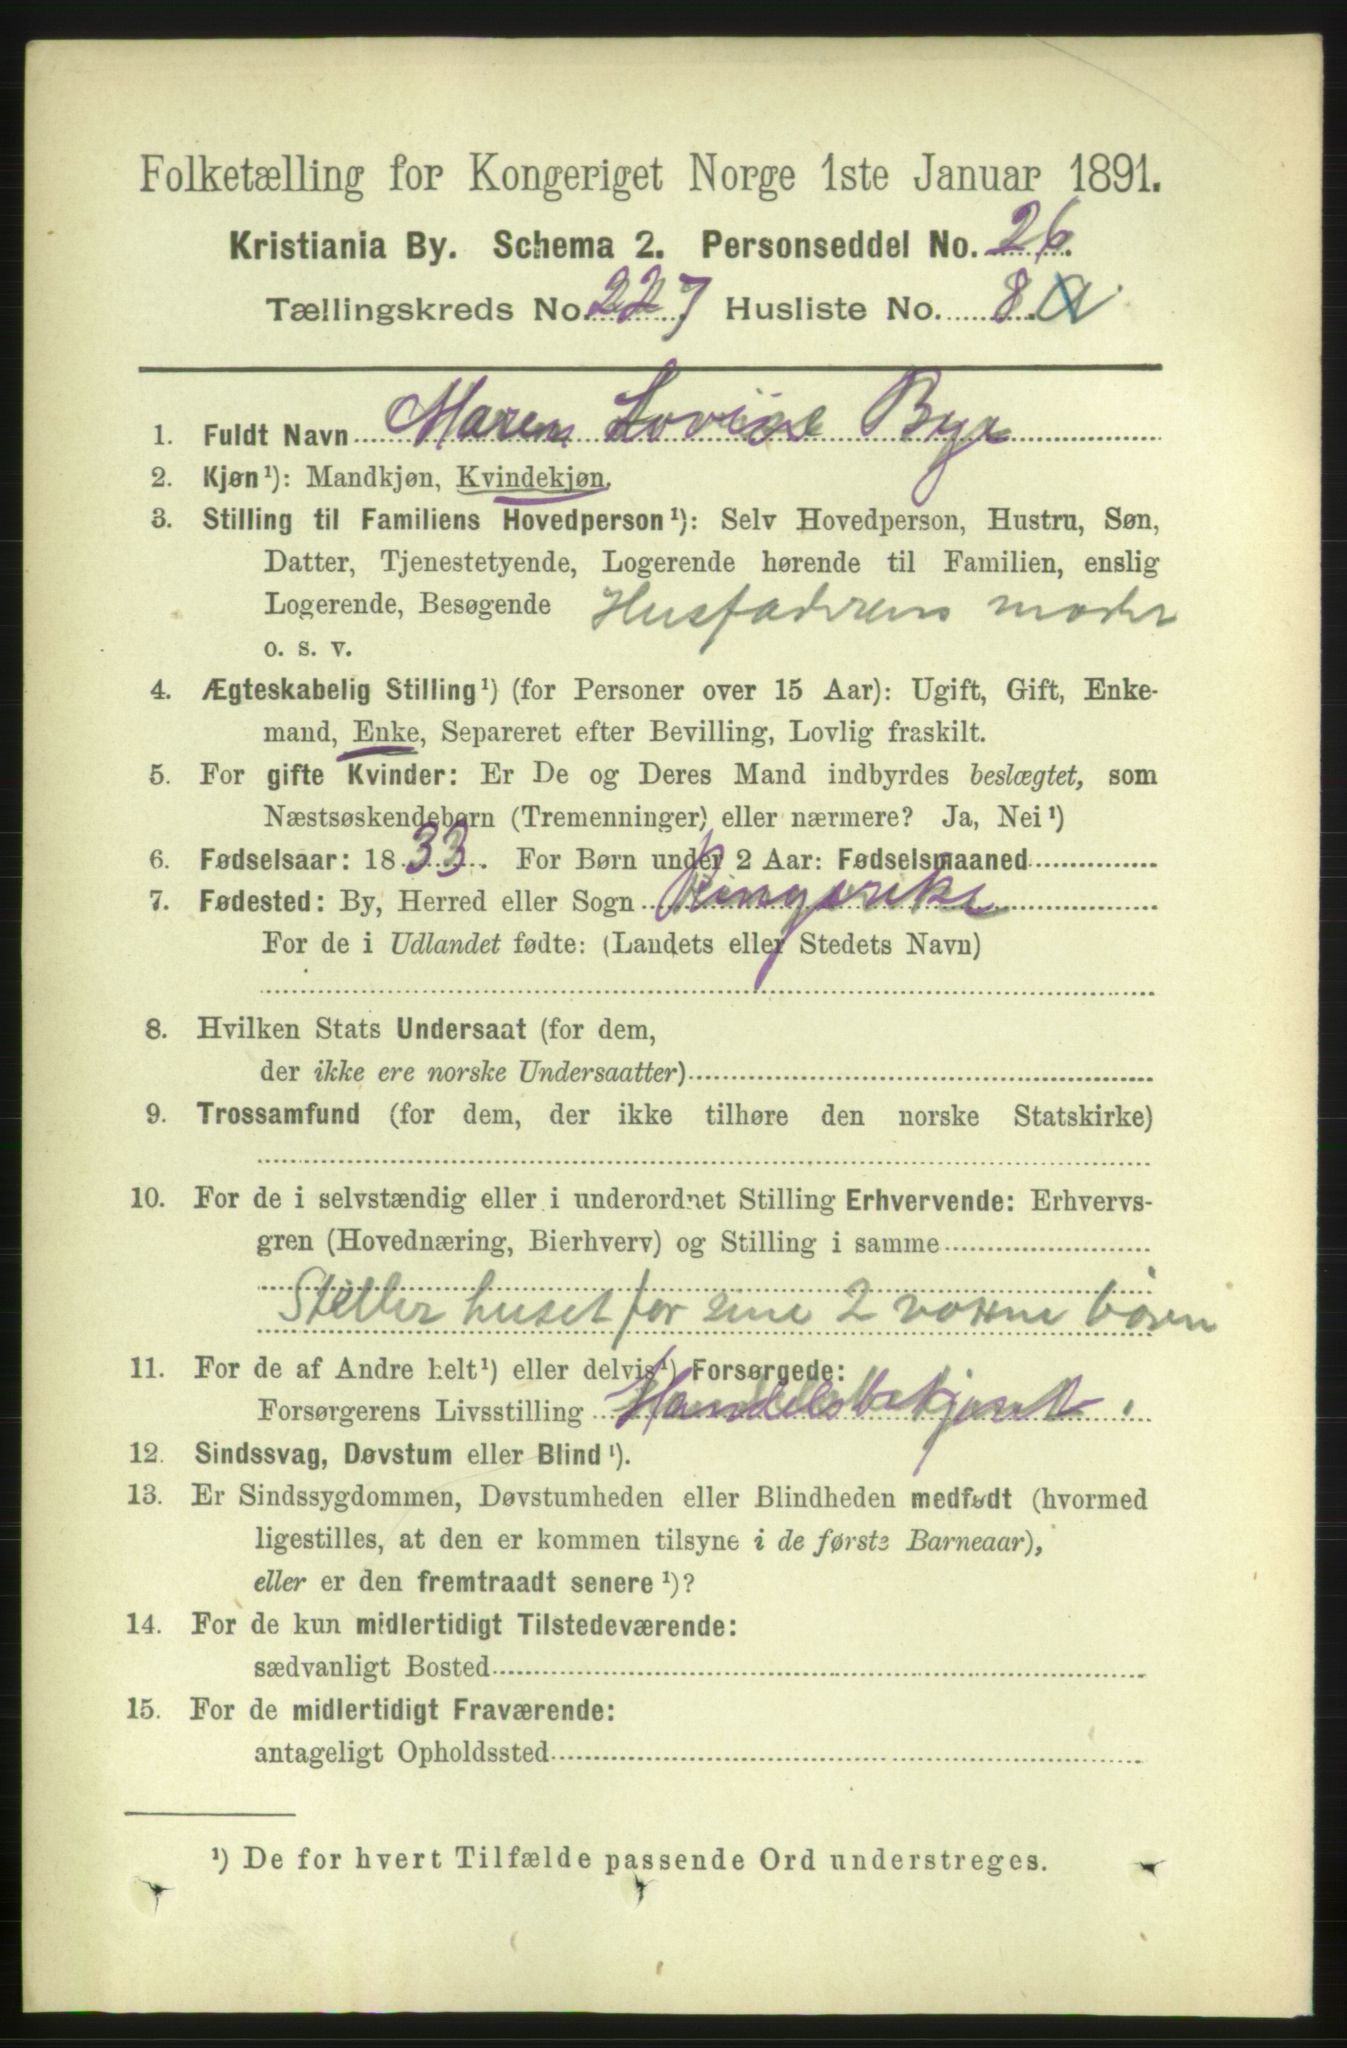 Folketælling for Kongeriget Norge 1ste Januar 1891.
Kristiania By. Schema 2. Personseddel No. 26.
Tællingskreds No. 227 Husliste No. 8 a
1. Fuldt Navn Maren Lovise Bye
2. Kjøn¹): Mandkjøn, Kvindekjøn.
3. Stilling til Familiens Hovedperson¹): Selv Hovedperson, Hustru, Søn,
Datter, Tjenestetyende, Logerende hørende til Familien, enslig
Logerende, Besøgende Husfaderens moder
o. s. v.
4. Ægteskabelig Stilling¹) (for Personer over 15 Aar): Ugift, Gift, Enke-
mand, Enke, Separeret efter Bevilling, Lovlig fraskilt.
5. For gifte Kvinder: Er De og Deres Mand indbyrdes beslægtet, som
Næstsøskendebørn (Tremenninger) eller nærmere? Ja, Nei¹)
6. Fødselsaar: 1833. For Børn under 2 Aar: Fødselsmaaned
7. Fødested: By, Herred eller Sogn Ringerike
For de i Udlandet fødte: (Landets eller Stedets Navn)
8. Hvilken Stats Undersaat (for dem,
der ikke ere norske Undersaatter)
9. Trossamfund (for dem, der ikke tilhøre den norske Statskirke)
10. For de i selvstændig eller i underordnet Stilling Erhvervende: Erhvervs-
gren (Hovednæring, Bierhverv) og Stilling i samme
Steller huset for sine 2 voxne börn
11. For de af Andre helt¹) eller delvis¹) Forsørgede:
Forsørgerens Livsstilling Handelsbetjent.
12. Sindssvag, Døvstum eller Blind¹).
13. Er Sindssygdommen, Døvstumheden eller Blindheden medfødt (hvormed
ligestilles, at den er kommen tilsyne i de første Barneaar),
eller er den fremtraadt senere¹)?
14. For de kun midlertidigt Tilstedeværende:
sædvanligt Bosted
15. For de midlertidigt Fraværende:
antageligt Opholdssted
¹) De for hvert Tilfælde passende Ord understreges.